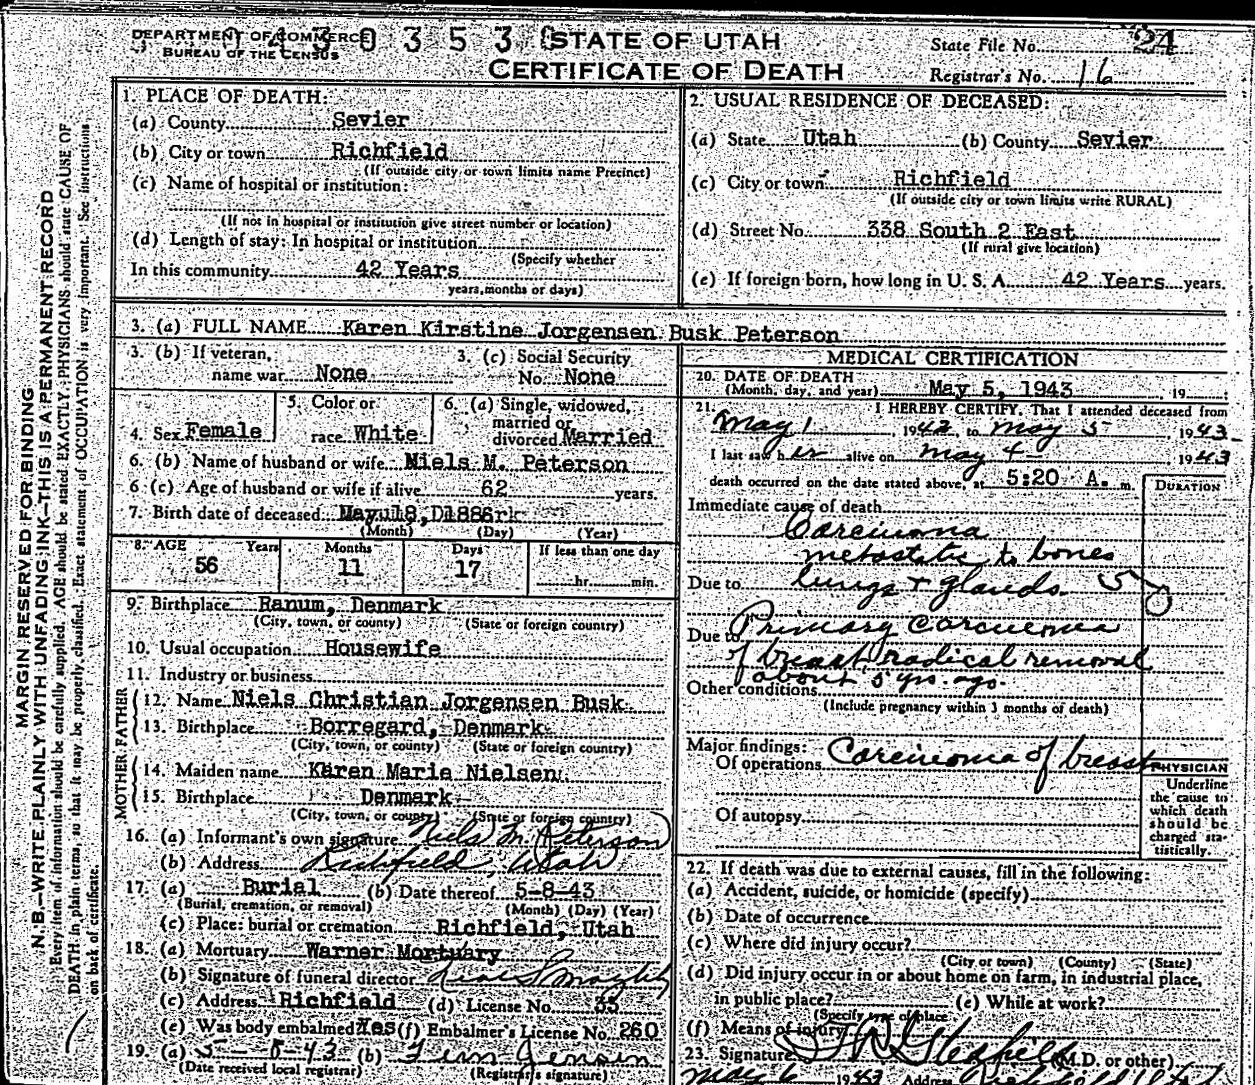 DEPARTMENT OF COMMERCE
BUREAU OF THE CENSUS
STATE OF UTAH
CERTIFICATE OF DEATH
State File No. 24
Registrar's No. 16
MARGIN RESERVED FOR BINDING
N. B.—WRITE PLAINLY WITH UNFADING INK—THIS IS A PERMANENT RECORD
Every item of information should be carefully supplied. AGE should be stated EXACTLY. PHYSICIANS should state CAUSE OF
DEATH in plain terms, so that it may be properly classified. Exact statement of OCCUPATION is very important. See instructions
on back of certificate.
1. PLACE OF DEATH:
(a) County Sevier
(b) City or town Richfield
(If outside city or town limits name Precinct)
(c) Name of hospital or institution:
(If not in hospital or institution give street number or location)
(d) Length of stay: In hospital or institution
(Specify whether
In this community 42 Years
years, months or days)
2. USUAL RESIDENCE OF DECEASED:
(a) State Utah (b) County Sevier
(c) City or town Richfield
(If outside city or town limits write RURAL)
(d) Street No. 338 South 2 East
(If rural give location)
(e) If foreign born, how long in U. S. A. 42 Years years.
3. (a) FULL NAME Karen Kirstine Jorgensen Busk Peterson
3. (b) If veteran, 3. (c) Social Security
name war None No. None
4. Sex Female
5. Color or
race White
6. (a) Single, widowed,
married or
divorced Married
6. (b) Name of husband or wife Niels M. Peterson
6 (c) Age of husband or wife if alive 62 years.
7. Birth date of deceased May 18, 1886
(Month) (Day) (Year)
8. AGE Years Months Days If less than one day
56 11 17 hr. min.
9. Birthplace Ranum, Denmark
(City, town, or county) (State or foreign country)
10. Usual occupation Housewife
11. Industry or business
FATHER
12. Name Niels Christian Jorgensen Busk
13. Birthplace Borregard, Denmark
(City, town, or county) (State or foreign country)
MOTHER
14. Maiden name Karen Marie Nielsen
15. Birthplace Denmark
(City, town, or county) (State or foreign country)
16. (a) Informant's own signature Niels M. Peterson
(b) Address Richfield, Utah
17. (a) Burial (b) Date thereof 5-8-43
(Burial, cremation, or removal) (Month) (Day) (Year)
(c) Place: burial or cremation Richfield, Utah
18. (a) Mortuary Warner Mortuary
(b) Signature of funeral director
(c) Address Richfield (d) License No. 35
(e) Was body embalmed? Yes (f) Embalmer's License No. 260
19. (a) 5-8-43 (b) Fern Jensen
(Date received local registrar) (Registrar's signature)
MEDICAL CERTIFICATION
20. DATE OF DEATH
(Month, day, and year) May 5, 1943, 19
21. I HEREBY CERTIFY, That I attended deceased from
May 1, 1942, to May 5, 1943
I last saw her alive on May 4, 1943
death occurred on the date stated above, at 5:20 A. m.
DURATION
Immediate cause of death
Carcinoma
metastatic to bones
Due to lungs + glands. 50
Due to Primary Carcinoma
of breast, radical removal
about 5 yrs. ago.
Other conditions
(Include pregnancy within 3 months of death)
Major findings:
Of operations Carcinoma of breast
Of autopsy
PHYSICIAN
Underline
the cause to
which death
should be
charged sta-
tistically.
22. If death was due to external causes, fill in the following:
(a) Accident, suicide, or homicide (specify)
(b) Date of occurrence
(c) Where did injury occur?
(City or town) (County) (State)
(d) Did injury occur in or about home on farm, in industrial place,
in public place? (e) While at work?
(Specify type of place
(f) Means of injury
23. Signature (M.D. or other)
May 6 1943 Address